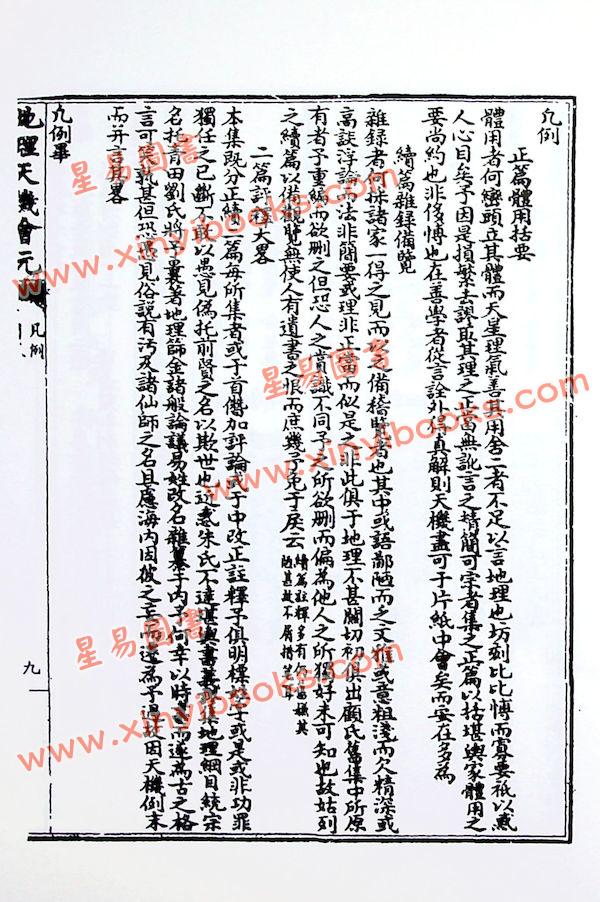 凡例
正篇體用括要
體用者何巒頭立其體而天星理氣善其用舍二者不足以言地理也坊刻比比博而寡要祇以惑
人心目矣予因是損繁去謬取其理之正當無訛言之精簡可宗者集之正篇以括堪輿家體用之
要尚約也非侈博也在善學者從言詮外得真解則天機盡可于片紙中會矣而妄在多為
續篇雜錄備覽
雜錄者何採諸家一得之見而以之備稽覽者也其中或語鄙陋而乏文雅或意粗淺而欠精深或
高談浮論而法非簡要或理非正當而似是之非此俱于地理不甚關切初俱出顧氏舊集中所原
有者予重編而欲刪之但恐人之賞識不同予之所欲刪而偏為他人之所獨好未可知也故姑列
之續篇以備觀覽無使人有遺書之恨而庶幾予免于戾云
續篇註釋多有
陋甚故不屑措筆
二篇評釋大畧
本集既分正續二篇每所集者或于首僭加評論或于中改正註釋予俱明標
獨任之已斷不敢以愚見偽托前賢之名以欺世也近惑朱氏不達堪輿書
名托青田劉氏將予曩著地理
言可笑孰甚但恐愚見俗說有污及諸仙師之名且慮海內因彼之妄而遂為予過故因天機例末
而并言其畧
凡例畢
地理天機會元
凡例
九
星易圖書
www.xinyibooks.com
星易圖書
www.xinyibooks.com
星易圖書
www.xinyibooks.com